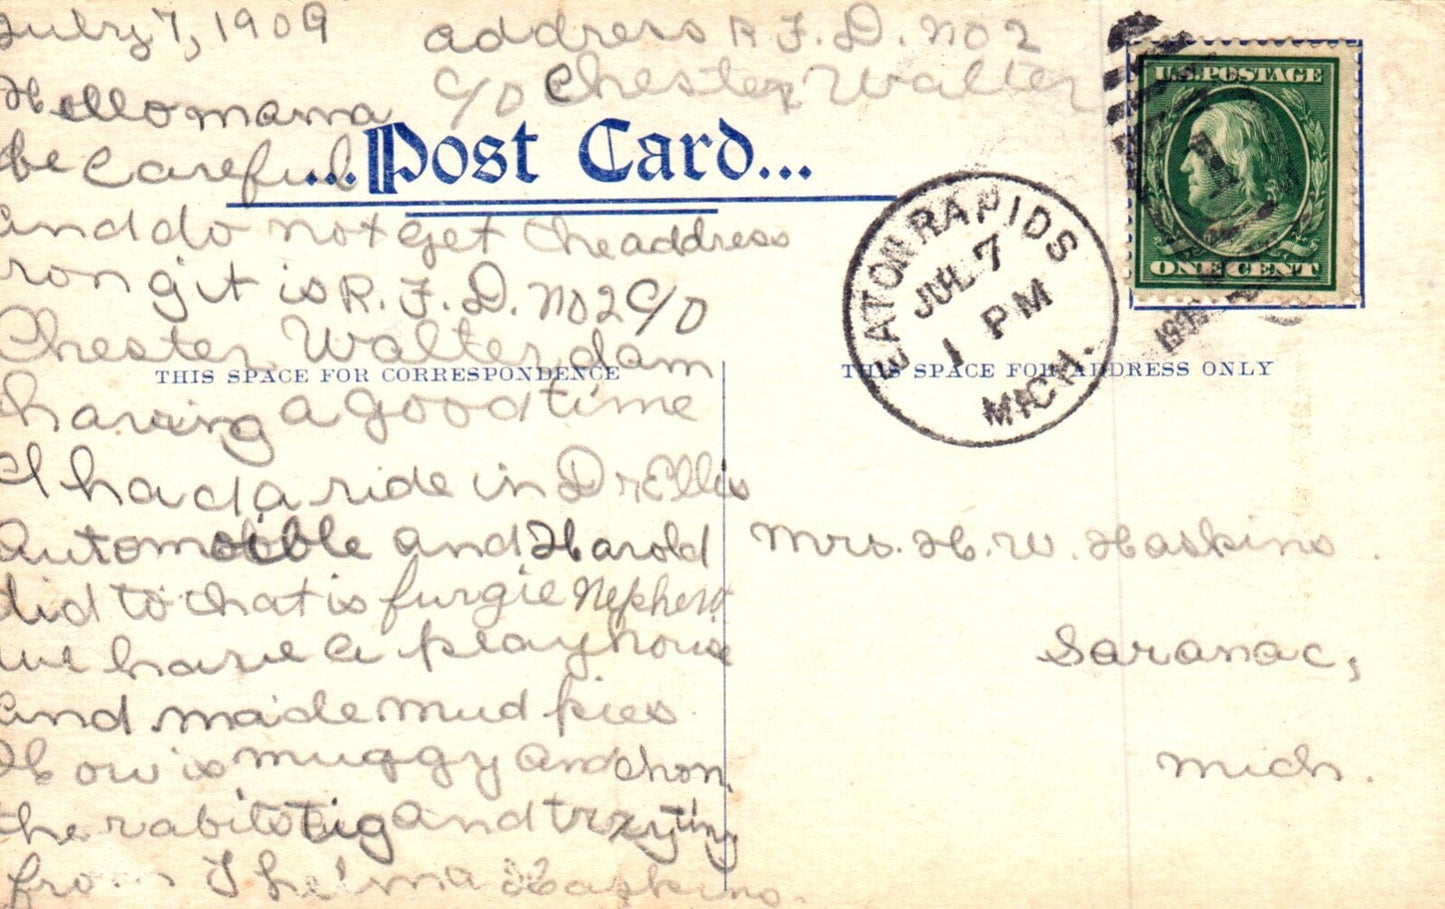 July 7, 1909
address R. F. D. no 2
c/o Chester Walter
Hello mama
be careful
...Post Card...
and do not get the address
rong it is R. F. D. no 2 c/o
Chester Walter. I am
THIS SPACE FOR CORRESPONDENCE
having a good time
I had a ride in Dr Ellis
Automobile and Harold
did to that is furgie Nephew
we have a playhouse
and made mud pies
How is muggy and
the rabits tig and
from Thelma Haskins.
U.S. POSTAGE
ONE CENT
EATON RAPIDS
JUL 7
1 PM
MICH.
1909
THIS SPACE FOR ADDRESS ONLY
Mrs. H. W. Haskins.
Saranac,
Mich.